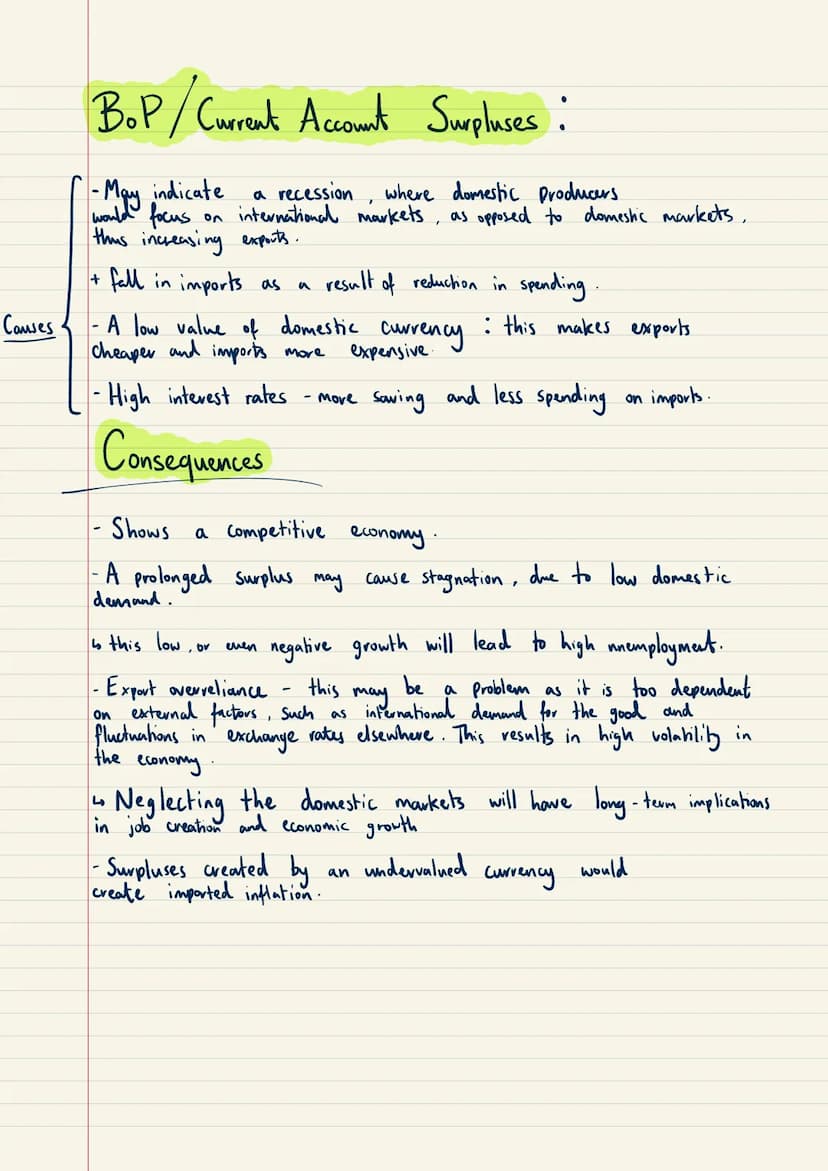 BoP/Current Account Surpluses :
- May indicate a recession, where domestic Producers
would focus on international markets, as opposed to domestic markets,
thus increasing exports.
+ fall in imports as a result of reduction in spending.
Causes
- A low value of domestic currency : this makes exports
cheaper and imports more expensive.
- High interest rates - more saving and less spending on imports.
Consequences
- Shows a competitive economy.
- A prolonged surplus may cause stagnation, due to low domestic
demand.
↳ this low, or even negative growth will lead to high unemployment.
- Export overreliance - this may be a problem as it is too dependent
on external factors, such as international demand for the good and
fluctuations in exchange rates elsewhere. This results in high volatility in
the economy.
↳ Neglecting the domestic markets will have long-term implications
in job creation and economic growth
- Surpluses created by an undervalued currency would
create imported inflation.